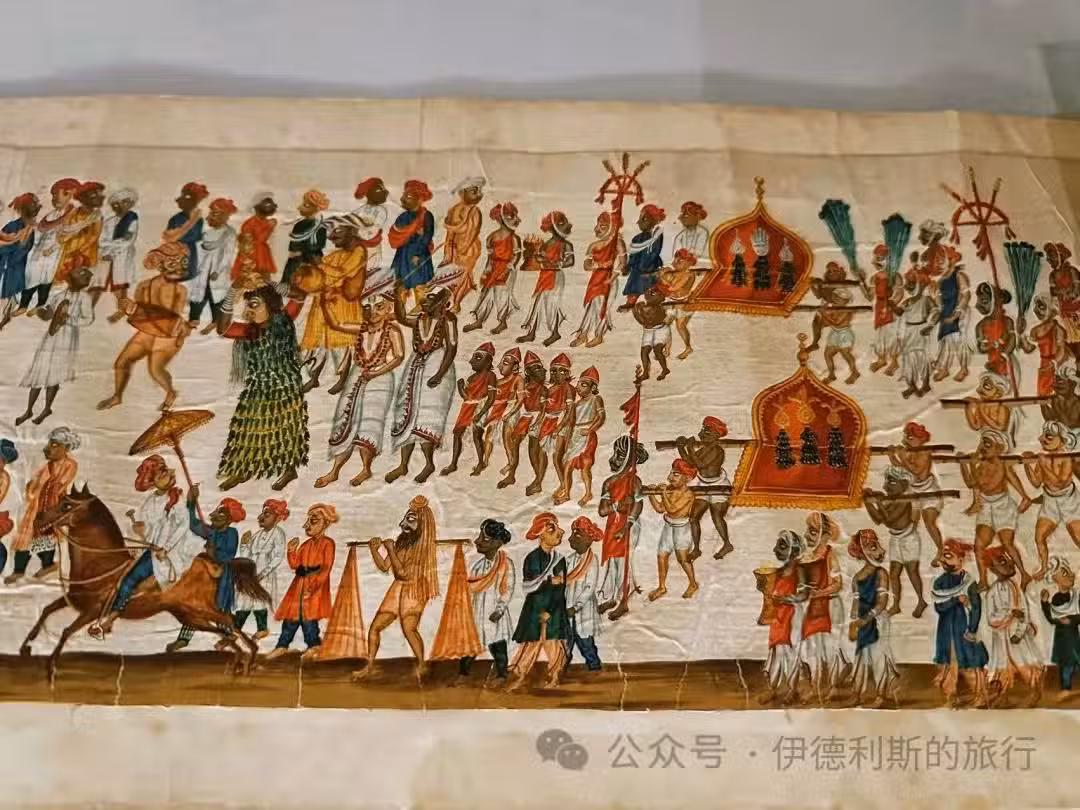 公众号 · 伊德利斯的旅行